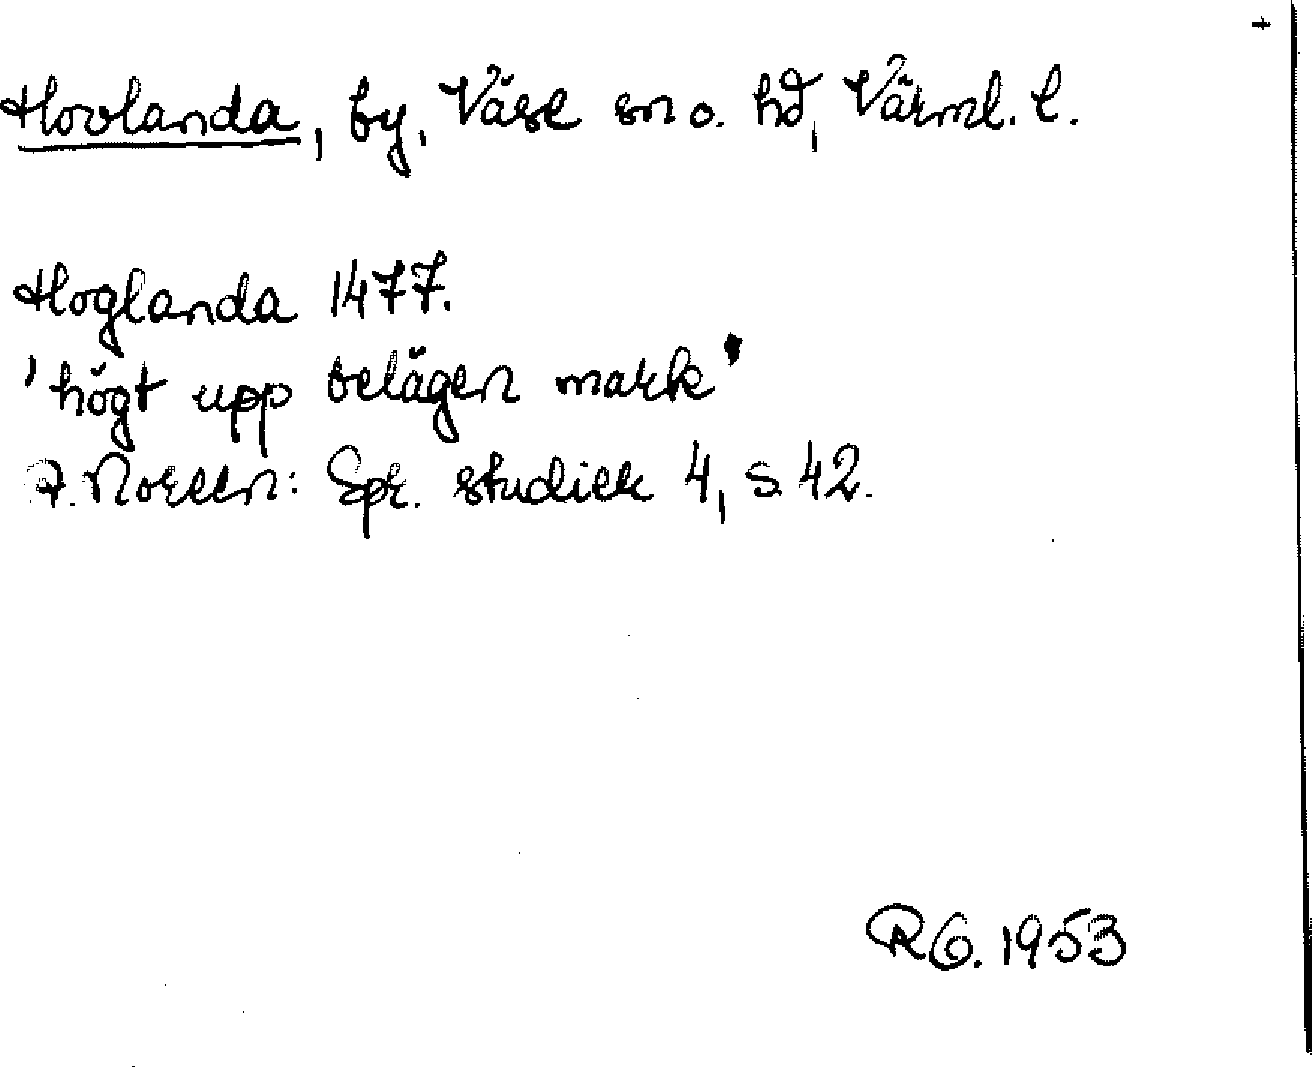 +
Hovlanda, by, Väse sn o. hd, Värml. l.
Hoglanda 1477.
'högt upp belägen mark'
A. Noreen: Spr. studier 4, s 42.
RG. 1953